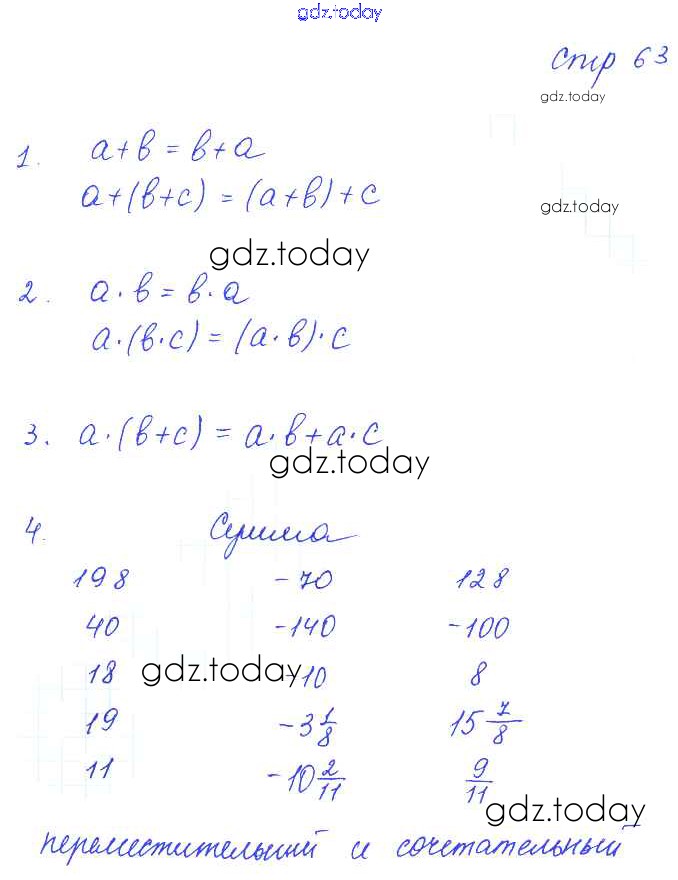 gdz.today
стр 63
gdz.today
1. a+в = в+a
a+(в+c) = (a+в)+c
gdz.today
gdz.today
2. a·в = в·a
a·(в·c) = (a·в)·c
3. a·(в+c) = a·в+a·c
gdz.today
4. Сумма
198 -70 128
40 -140 -100
18 -10 8
gdz.today
19 -3 1/8 15 7/8
11 -10 2/11 9/11
gdz.today
переместительный и сочетательный